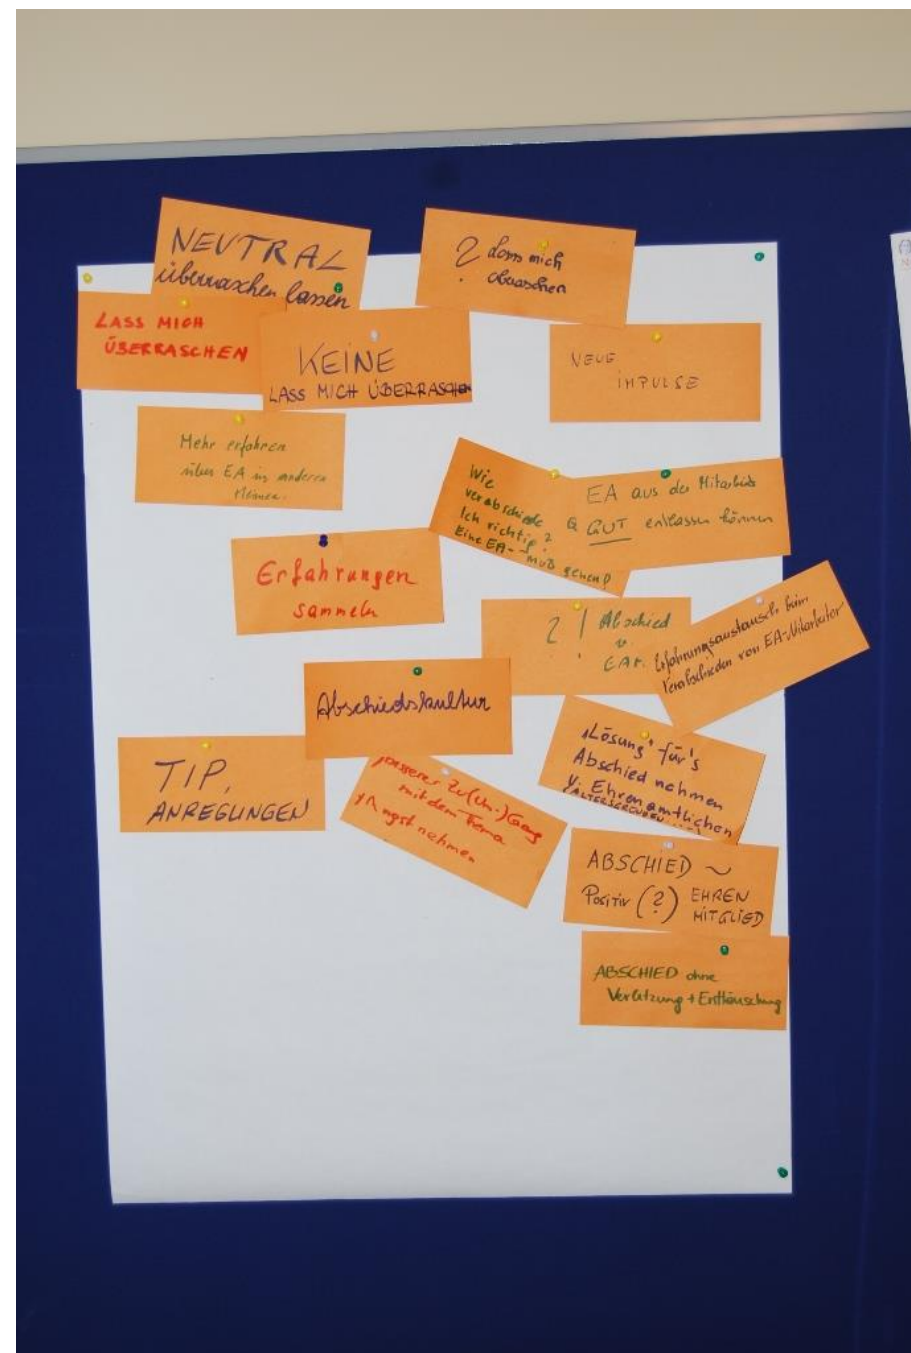 NEUTRAL
überraschen lassen
? lass mich
überraschen
LASS MICH
ÜBERRASCHEN
KEINE
LASS MICH ÜBERRASCHEN
NEUE
IMPULSE
Mehr erfahren
über EA in anderen
Wie
verabschiede
Ich richtig?
Eine EA- muß gehen
EA aus der Mitarbeit
GUT entlassen können
Erfahrungen
sammeln
? ! Abschied
v
EA
Erfahrungsaustausch beim
Verabschieden von EA-Mitarbeiter
Abschiedskultur
TIP,
ANREGUNGEN
besserer Zu(ch-)Gang
mit dem Thema
Angst nehmen
"Lösung" für's
Abschied nehmen
v. Ehrenamtlichen
ALTERSGRÜNDEN
ABSCHIED ~
POSITIV (?) EHREN
MITGLIED
ABSCHIED ohne
Verletzung + Enttäuschung